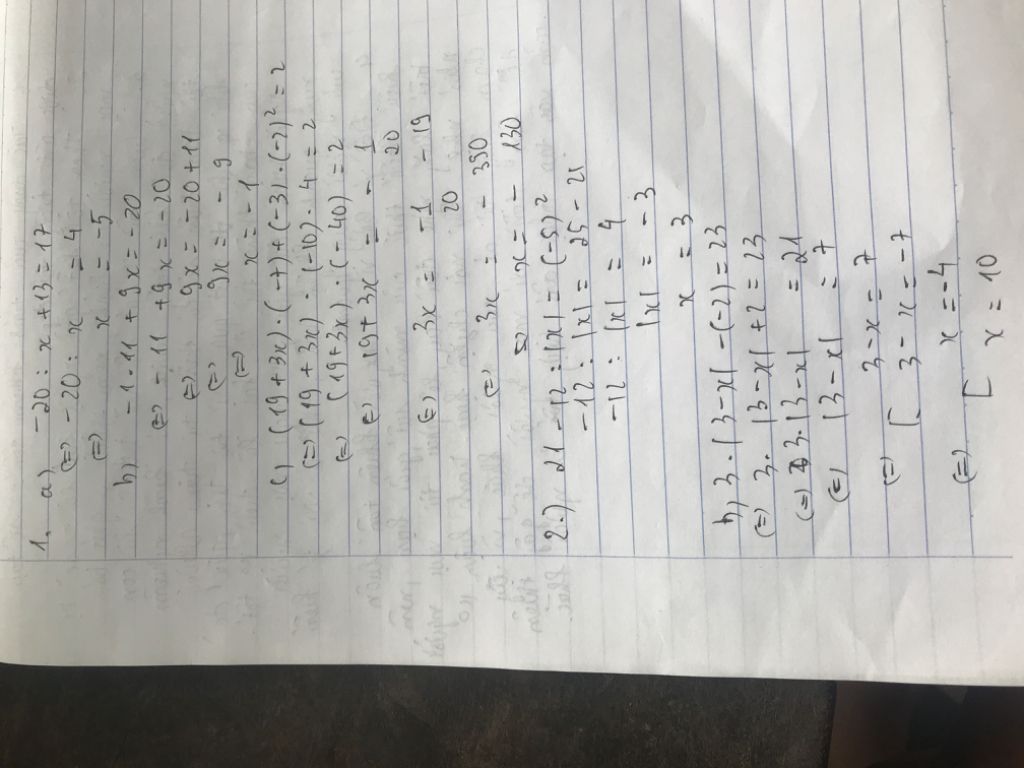 1. a) -20 : x + 13 = 17
(=) -20 : x = 4
(=) x = -5
b) -1 . 11 + 9x = -20
(=) -11 + 9x = -20
(=) 9x = -20 + 11
(=) 9x = -9
(=) x = -1
c) (19 + 3x) . (-7) + (-3) . (-2)² = 2
(=) (19 + 3x) . (-10) . 4 = 2
(=) (19 + 3x) . (-40) = 2
(=) 19 + 3x = -1/20
(=) 3x = -1/20 - 19
(=) 3x = - 390
(=) x = - 130
2.) 21 - 12 : |x| = (-5)²
-12 : |x| = 25 - 21
-12 : |x| = 4
|x| = -3
x = 3
b) 3 . |3 - x| - (-2) = 23
(=) 3 . |3 - x| + 2 = 23
(=) 3 . |3 - x| = 21
(=) |3 - x| = 7
(=) [ 3 - x = 7
3 - x = -7
(=) [ x = -4
x = 10